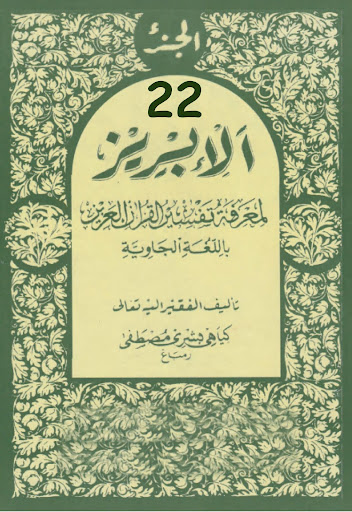 الجزء
22
الإبريز
لمعرفة تفسير القرآن العزيز
باللغة الجاوية
تأليف الفقير اليه تعالى
كياهى بشرى مصطفى
رمباغ